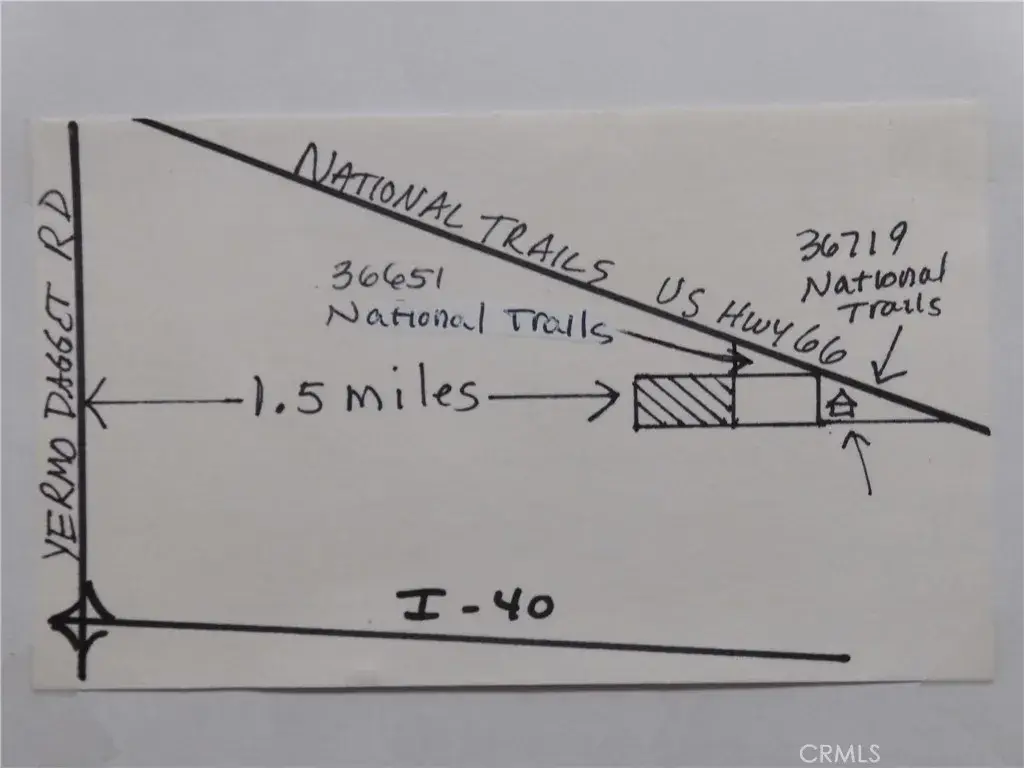 YERMO DAGGET RD
NATIONAL TRAILS US HWY 66
36651
National Trails
36719
National
Trails
1.5 miles
I-40
CRMLS